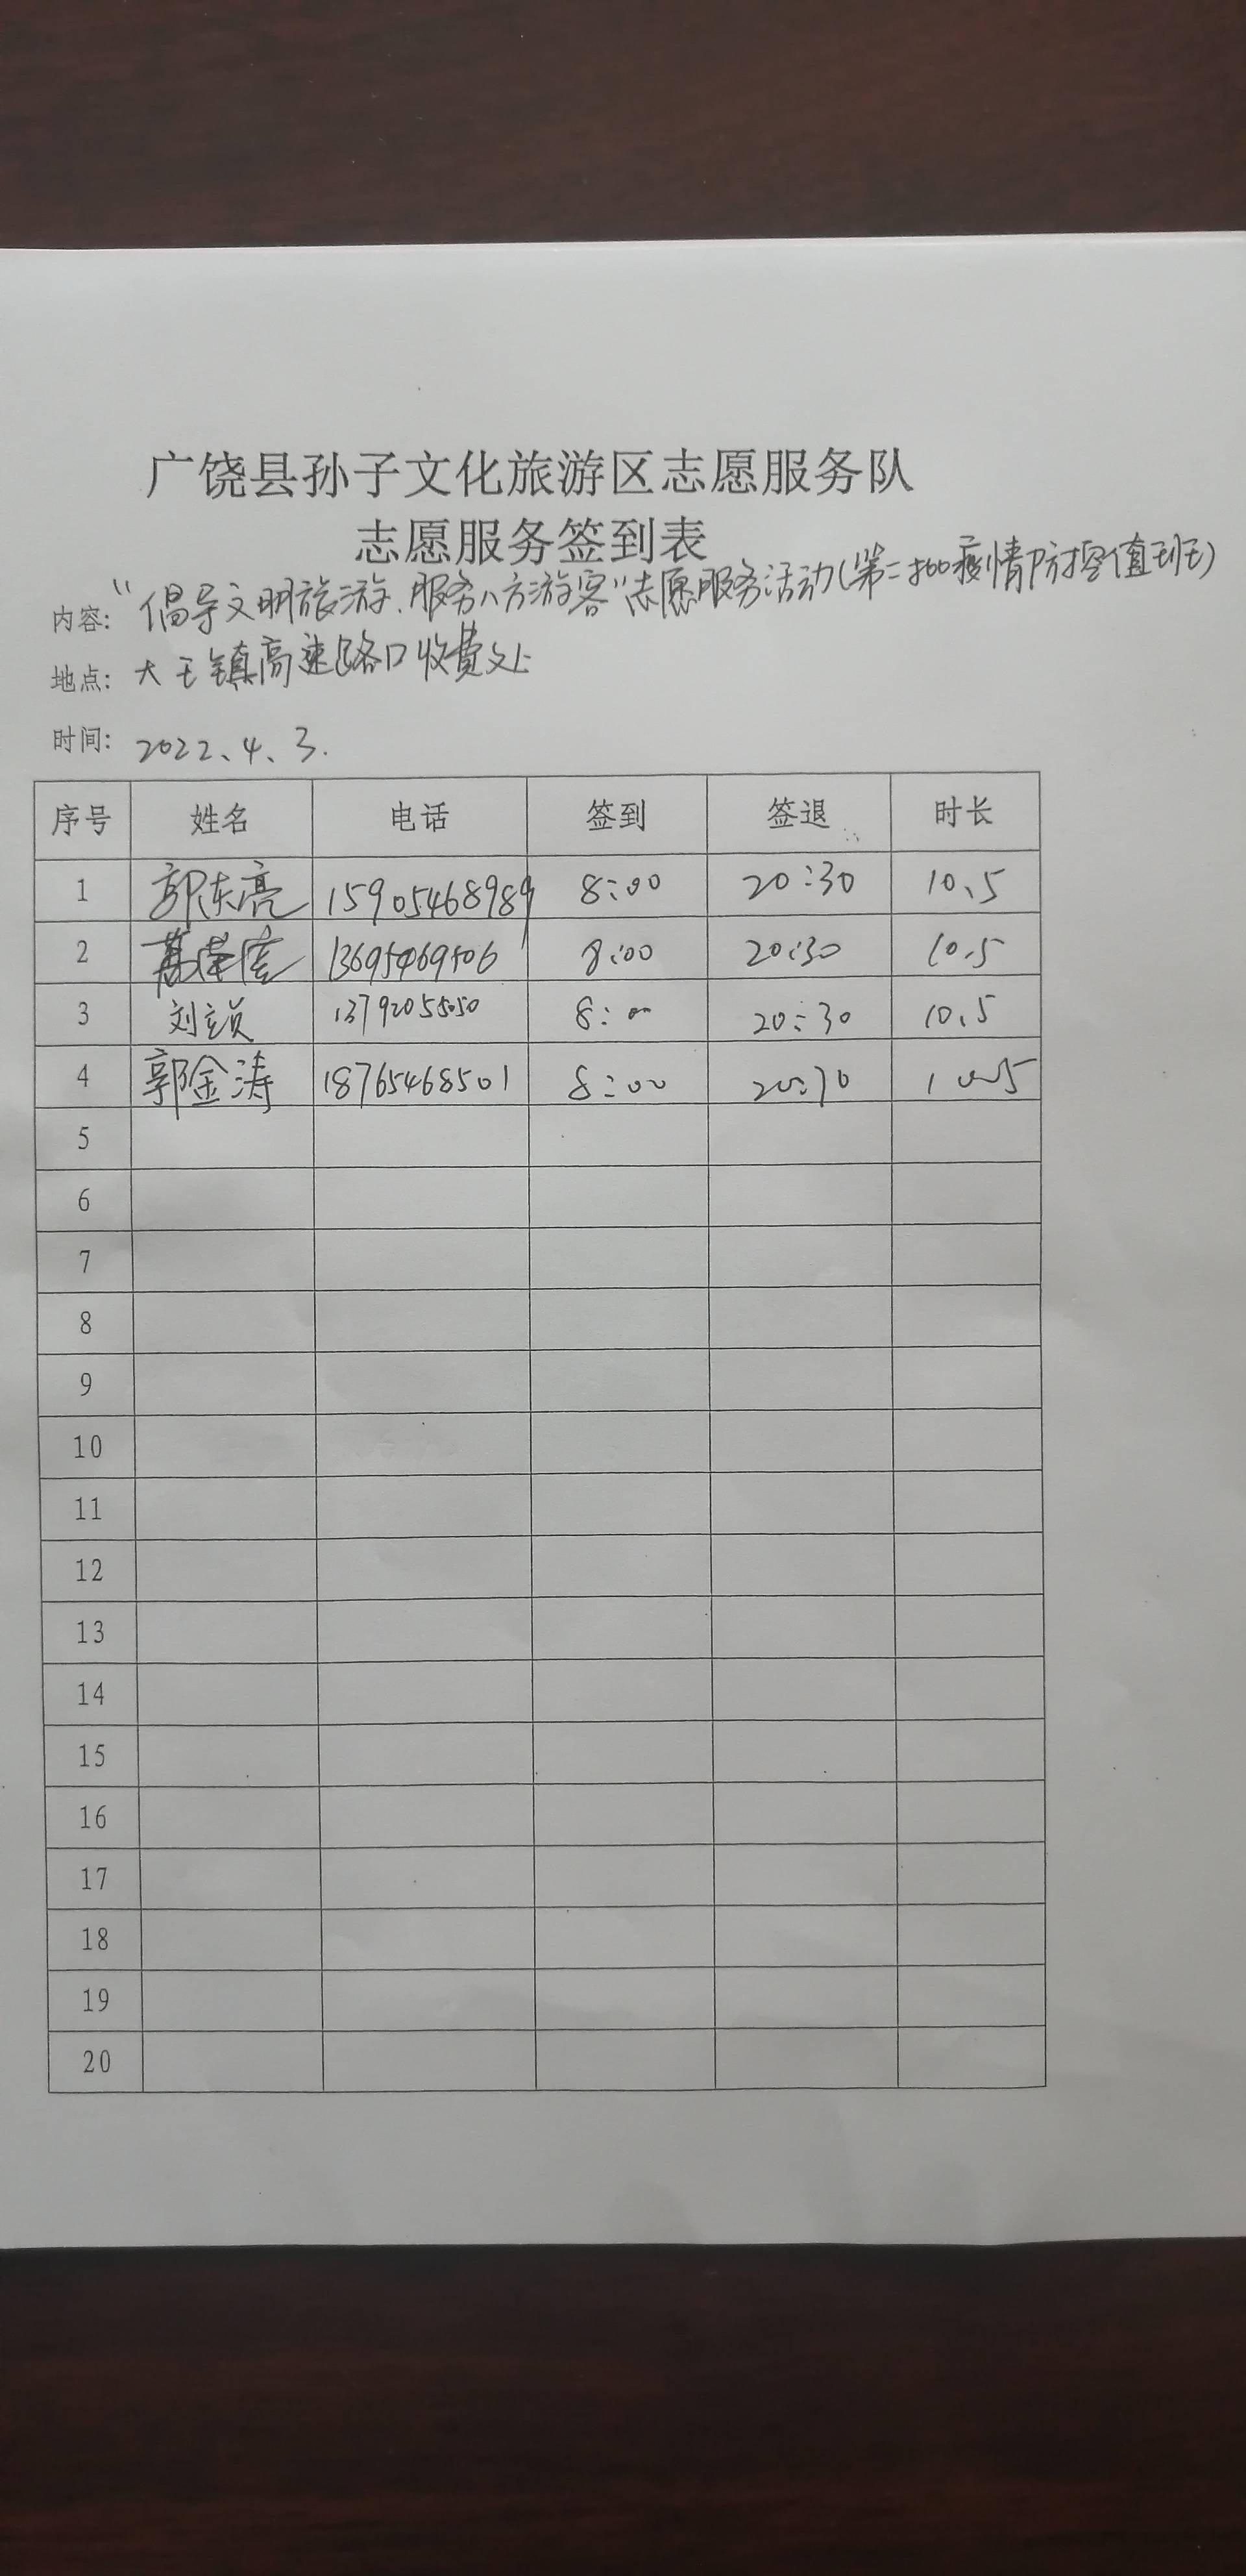 广饶县孙子文化旅游区志愿服务队
志愿服务签到表
内容: "倡导文明旅游、服务八方游客"志愿服务活动(第二批疫情防控值班)
地点: 大王镇高速路口收费处
时间: 2022、4、3.
序号 姓名 电话 签到 签退 时长
1 郭东亮 15905468989 8:00 20:30 10.5
2 8:00 20:30 10.5
3 13792055050 8:00 20:30 10.5
4 郭金涛 18765468501 8:00 20:30 10.5
5
6
7
8
9
10
11
12
13
14
15
16
17
18
19
20